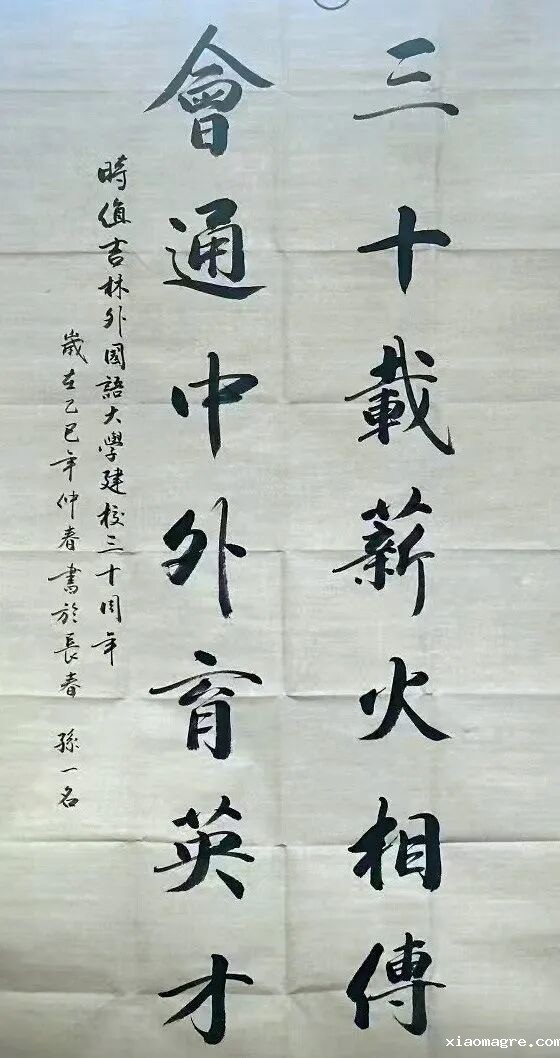 三十載薪火相傳
會通中外育英才
時值吉林外國語大學建校三十周年
歲在乙巳年仲春書於長春 孫一名
xiaomagre.com